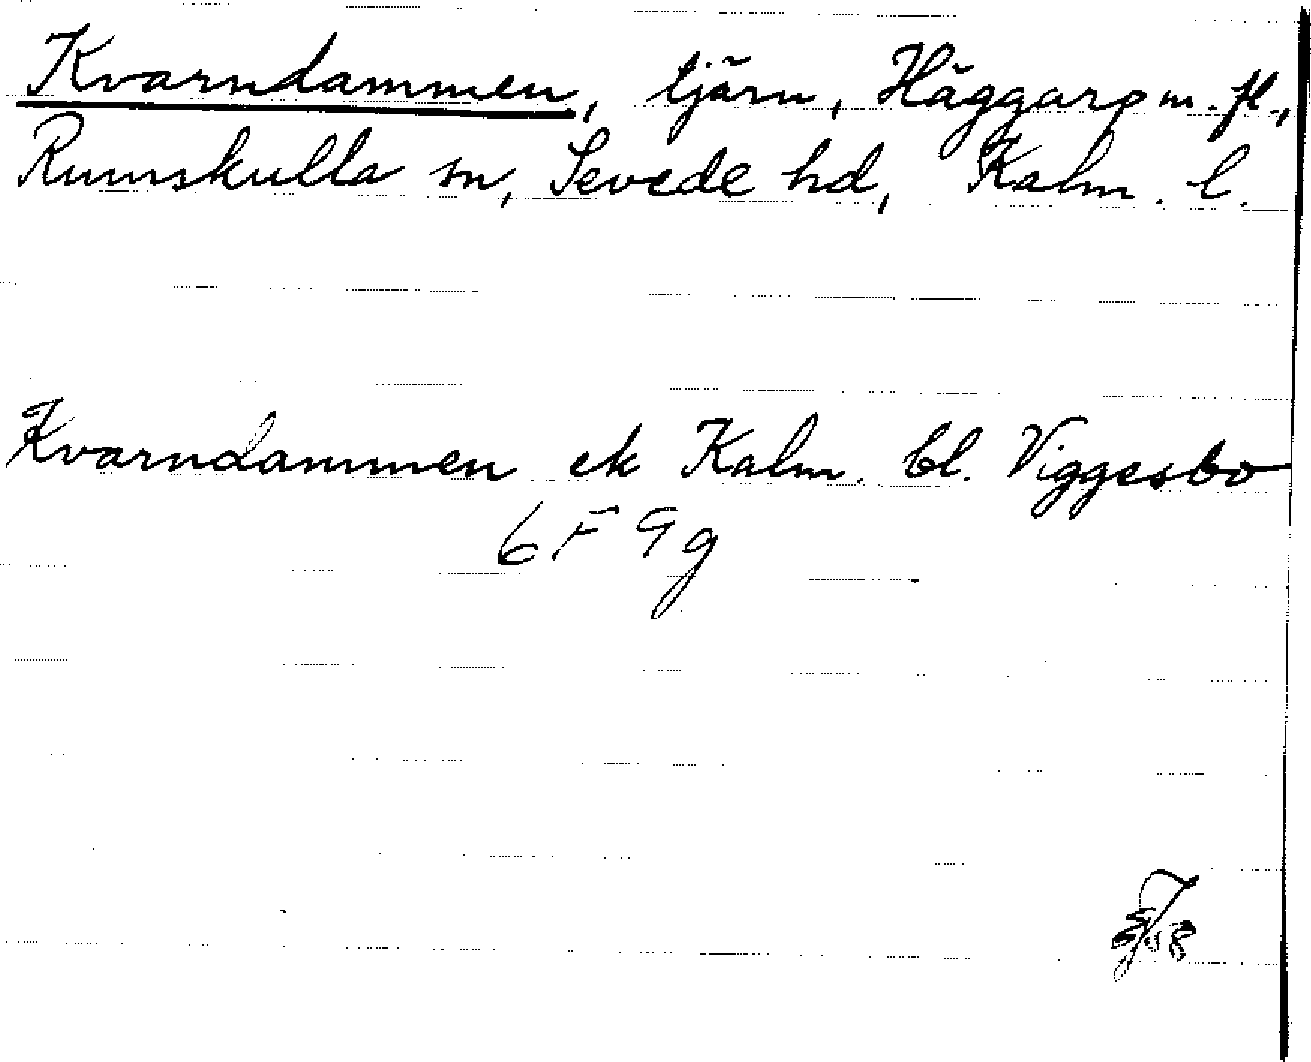 Kvarndammen, tjärn, Häggarp m. fl.,
Rumskulla sn, Sevede hd, Kalm. l.
Kvarndammen ek Kalm. bl. Viggesbo
6 F 9 g